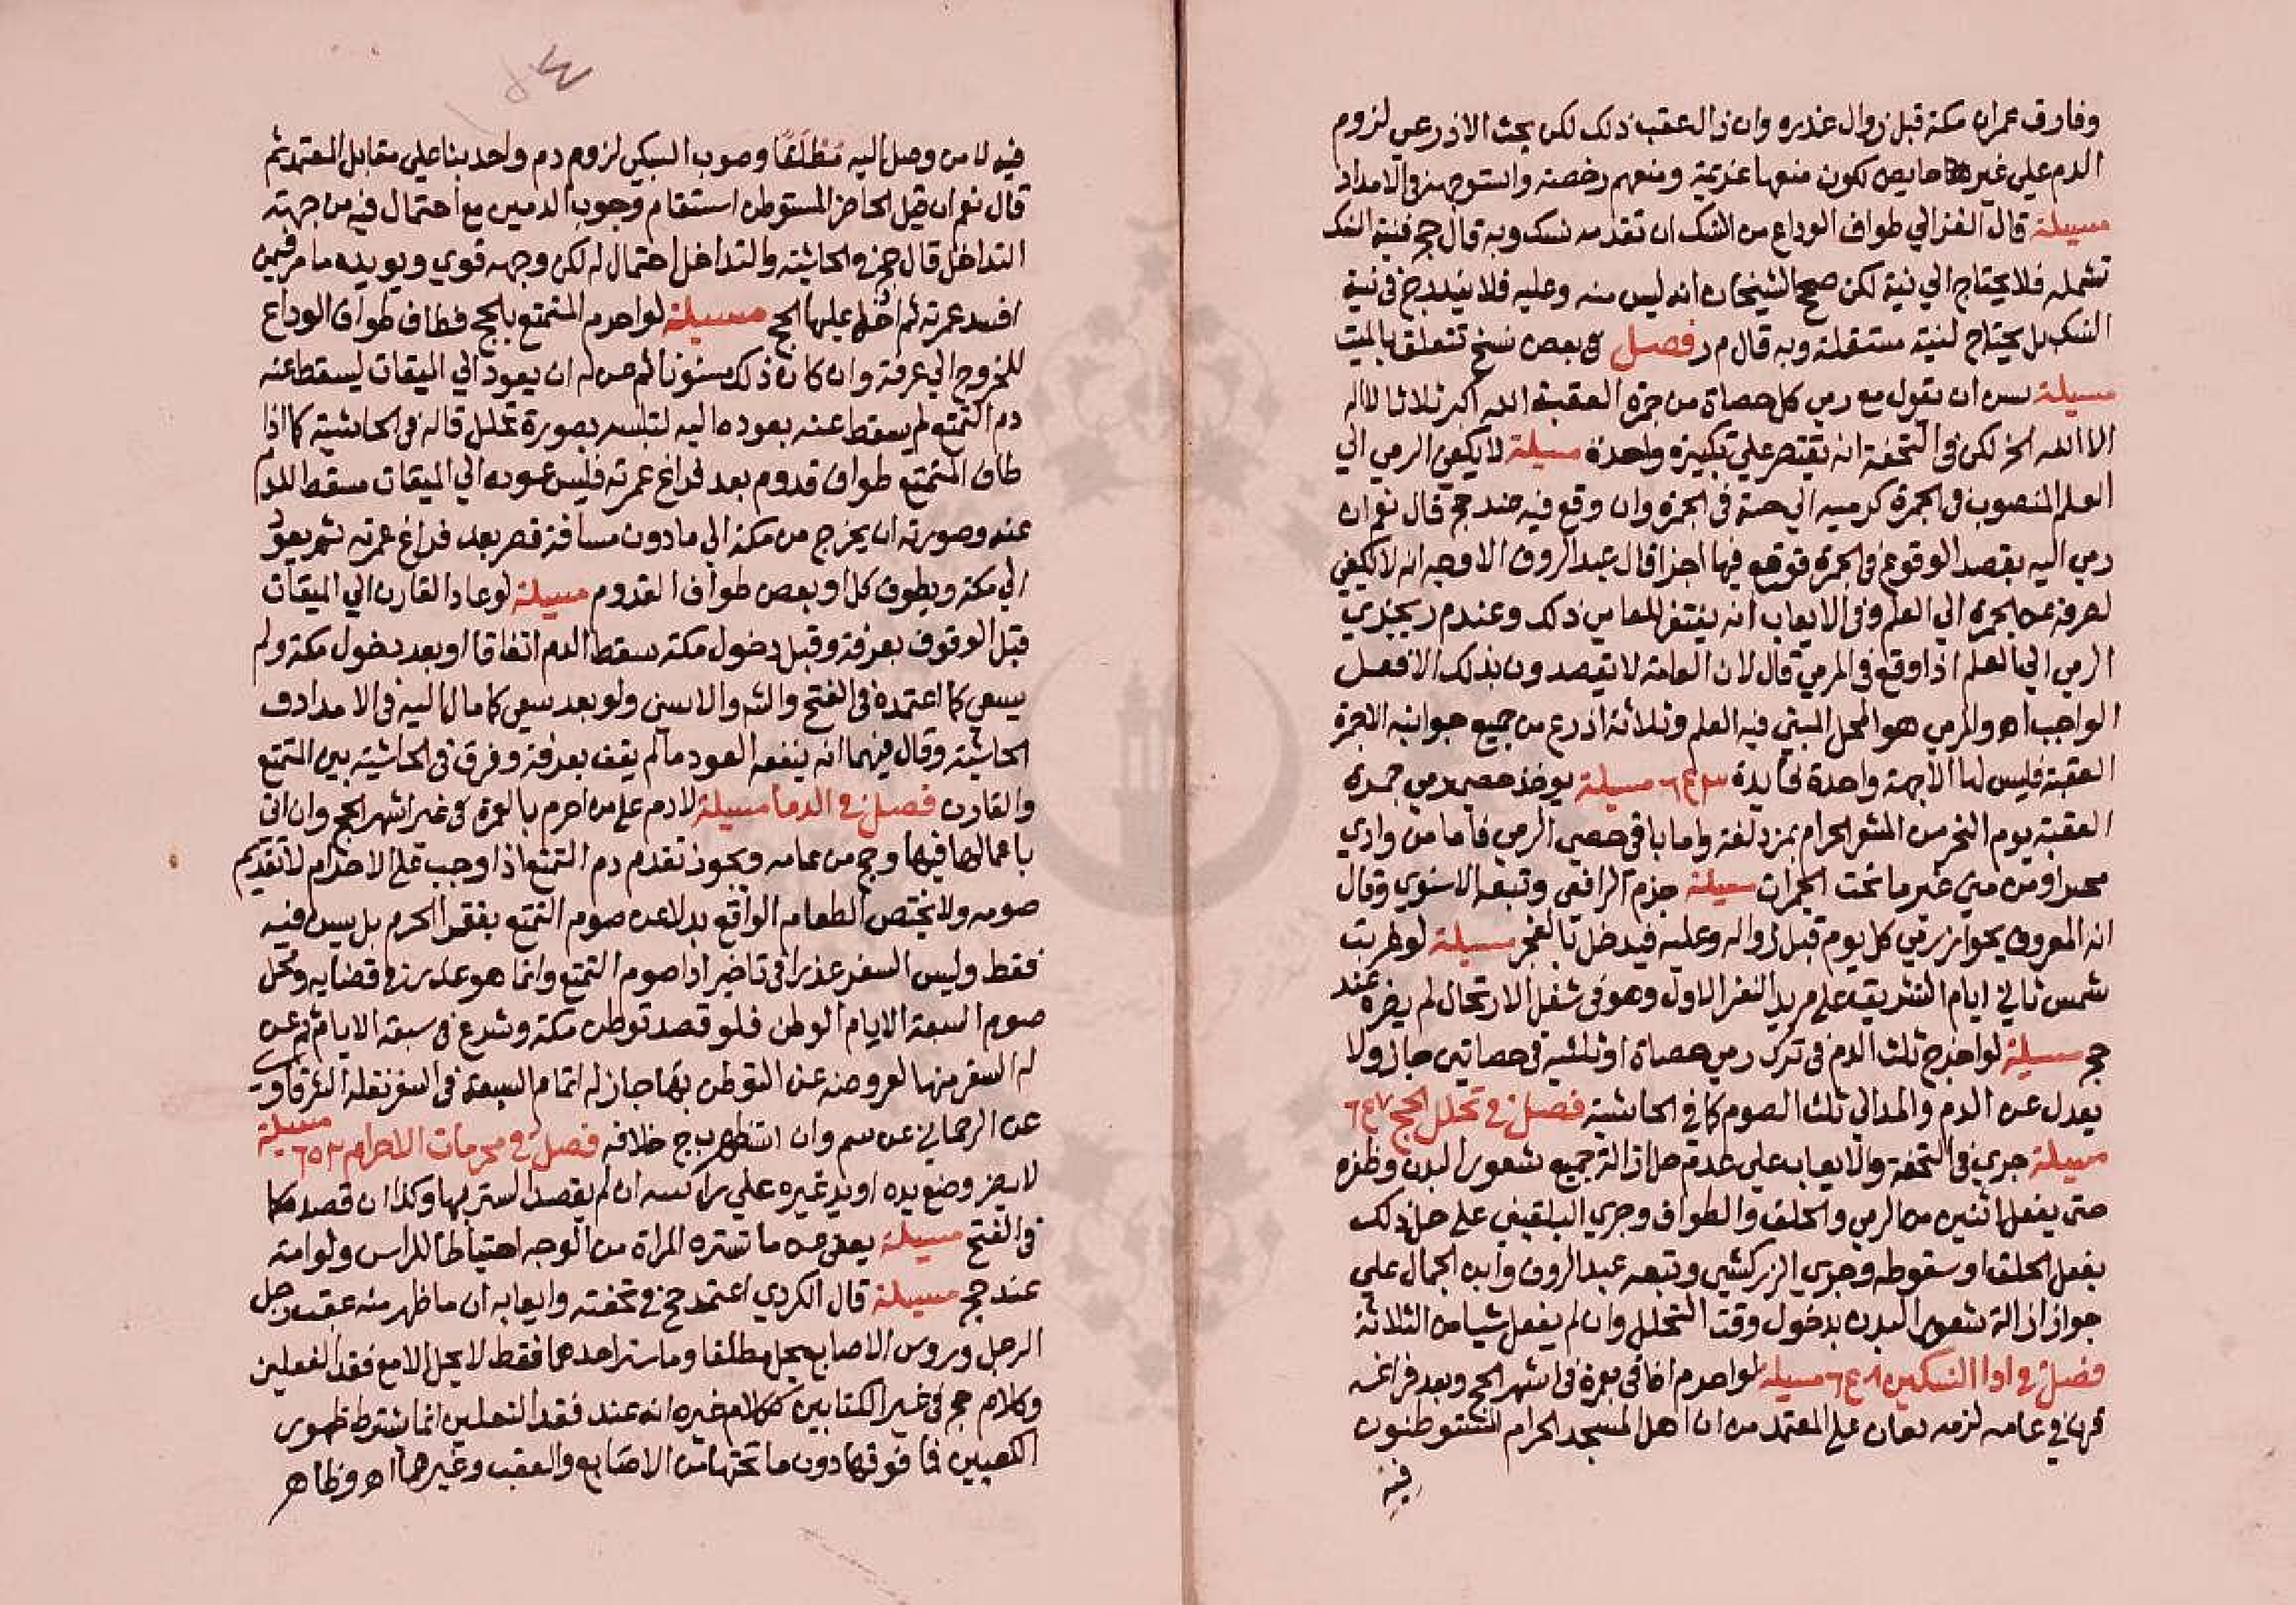 وفارق عمران مكة قبل زوال عذره وان ذا العقب ذلك لكن بحث الاذرعي لزوم
الدم على غير حايض لكون منعها عزيمة ومنعهم رخصة واستوجهه في الامداد
مسيلة قال الغزالي طواف الوداع من النسك ان تقدمه نسك وبه قال حج فنية النسك
تشمله فلا يحتاج الي نية لكن صحح الشيخان انه ليس منه وعليه فلا يندرج في نية
النسك بل يحتاج لنية مستقلة وبه قال م ر فصل في بعض نسخ تتعلق بالمبيت
مسيلة يسن ان يقول مع رمي كل حصاة من جمرة العقبة الله اكبر ثلاثا لا اله
الا الله الخ لكن في التحفة انه يقتصر علي تكبيرة واحدة مسيلة لا يكفي الرمي الي
العلم المنصوب في الجمرة كرميه الي حية في الجمرة وان وقع فيه عند حج قال نعم ان
رمي اليه بقصد الوقوع في الجمرة فوقع فيها اجزا قال عبد الروف الاوجه انه لا يكفي
لصرفه عن الجمرة الي العلم وفي الايعاب انه يغتفر للعامي ذلك وعند م ر يجزي
الرمي الي العلم اذا وقع في المرمي قال لان العامة لا يقصدون بذلك الا فعل
الواجب اه والمرمي هو المحل المبني فيه العلم وثلاثة اذرع من جميع جوانبه الا جمرة
العقبة فليس لها الا جهة واحدة فايدة ٦٤٣ مسيلة يوخذ حصي رمي جمرة
العقبة يوم النحر من المشعر الحرام بمزدلفة واما باقي حصي الرمي فاما من وادي
محسر او من مني غير ما تحت الجمرات مسيلة جزم الرافعي وتبعه الاسنوي وقال
انه المعروف بجواز رمي كل يوم قبل زواله وعليه فيدخل بالفجر مسيلة لو غربت
شمس ثاني ايام التشريق علي مريد النفر الاول وهو في شغل الارتحال لم يضره عند
حج مسيلة لو اخرج ثلث الدم في ترك رمي حصاة او ثلثيه في حصاتين جاز ولا
يعدل عن الدم والمد الي ثلث الصوم كما في الحاشية فصل في تحلل الحج ٦٤٧
مسيلة جري في التحفة والايعاب علي عدم حل ازالة جميع شعور البدن وظفره
حتى يفعل اثنين من الرمي والحلق والطواف وجري البلقيني علي حل ذلك
بفعل الحلق او سقوطه وجري الزركشي وتبعه عبد الروف وابن الجمال علي
جواز ازالة شعور البدن بدخول وقت التحلل وان لم يفعل شيا من الثلاثة
فصل في ادا النسكين ٦٤٨ مسيلة لو احرم افاقي بعمرة في اشهر الحج وبعد فراغه
قرن في عامه لزمه دمان علي المعتمد من ان اهل المسجد الحرام المستوطنون
فيه
فيه لا من وصل اليه مُطْلَقًا وصوب السبكي لزوم دم واحد بنا علي مقابل المعتمد ثم
قال نعم ان قيل الحاضر المستوطن استقام وجوب الدمين مع احتمال فيه من جهته
التداخل قال حج في الحاشية والتداخل احتمال له لكن وجهه قوي ويويده ما مر فيمن
افسد عمرته ثم ادخل عليها الحج مسيلة لو احرم المتمتع بالحج فطاف طواف الوداع
للخروج الي عرفة وان كان ذلك مسنونا ثم عن له ان يعود الي الميقات ليسقط عنه
دم التمتع لم يسقط عنه بعوده اليه لتلبسه بصورة تحلل قاله في الحاشية كما اذا
طاف المتمتع طواف قدوم بعد فراغ عمرته فليس عوده الي الميقات مسقط للدم
عنه وصورته ان يخرج من مكة الي ما دون مسافة قصر بعد فراغ عمرته ثم يعود
الي مكة ويطوف كل او بعض طواف القدوم مسيلة لو عاد القارن الي الميقات
قبل الوقوف بعرفة وقبل دخول مكة سقط الدم اتفاقا او بعد دخول مكة ولم
يسعي كما اعتمده في الفتح والاسني ولو بعد سعي كما مال اليه في الامداد و
الحاشية وقال فيهما انه ينفعه العود ما لم يقف بعرفة وفرق في الحاشية بين المتمتع
والقارن فصل في الدما مسيلة لا دم علي من احرم بالعمرة في غير اشهر الحج وان اتي
باعمالها فيها وحج من عامه ويجوز تقدم دم التمتع اذا وجب علي الاحرام لا تقديم
صومه ولا يختص الطعام الواقع بدلا عن صوم التمتع بفقرا الحرم بل يسن فيه
فقط وليس السفر عذرا في تاخير ادا صوم التمتع وانما هو عذر في قضايه ومحل
صوم السبعة الايام الوطن فلو قصد توطن مكة وشرع في سبعة الايام ثم عن
له السفر منها لعروضه عن التوطن بها جاز له اتمام السبعة في السفر نقله الشرقاوي
عن الرحماني عن سم وان استظهر ب ج خلافه فصل في محرمات الاحرام ٦٥٣ مسيلة
لا يضر وضع يده او يد غيره علي راسه ان لم يقصد الستر بها وكذا ان قصد كما
في الفتح مسيلة يعفي عن ما تستره المراة من الوجه احتياطا للراس ولو امة
عند حج مسيلة قال الكردي اعتمد حج في تحفته وايعابه ان ما ظهر منه عقب رجل
الرجل وروس الاصابع يحل مطلقا وما ستر احدهما فقط لا يحل الا مع فقد النعلين
وكلام حج في غير الكتابين ككلام غيره انه عند فقد النعلين انما يشترط ظهور
الكعبين فما فوقها دون ما تحتها من الاصابع والعقب وغيرهما اه وظاهر